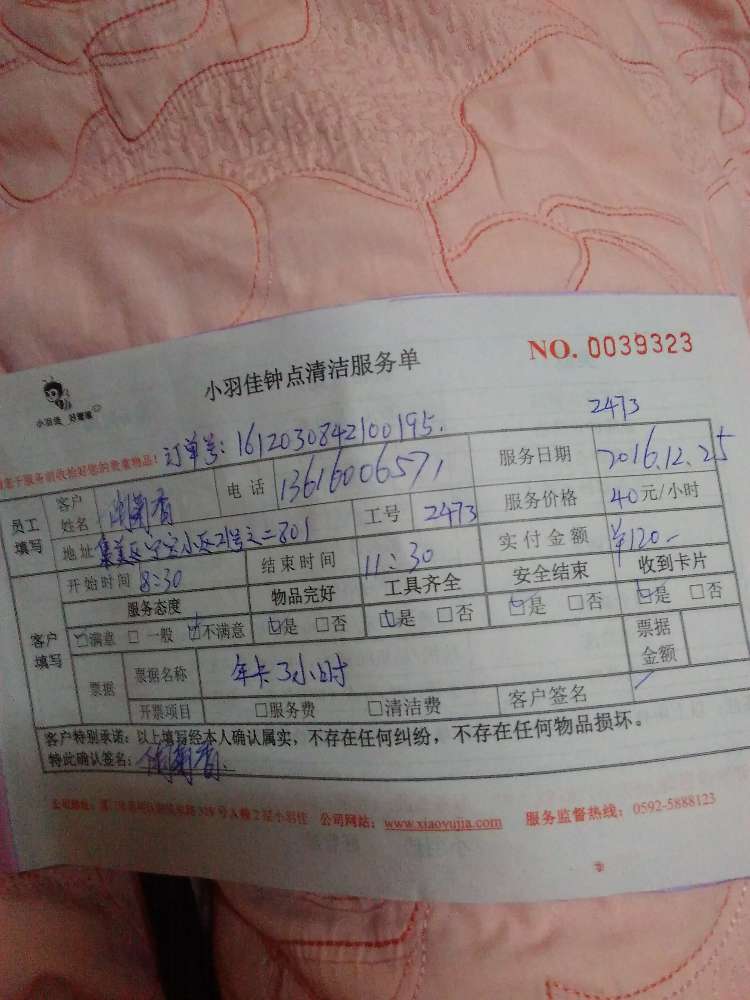 NO. 0039323
小羽佳钟点清洁服务单
小羽佳 好管家
订单号: 1612030842100195.
2473
员工填写 客户姓名 香 电话 13616006571 服务日期 2016.12.25
地址 集美区宁宝小区21号之二801 工号 2473 服务价格 40元/小时
开始时间 8:30 结束时间 11:30 实付金额 ¥120
客户填写 服务态度 物品完好 工具齐全 安全结束 收到卡片
☑满意 □一般 ☑不满意 ☑是 □否 ☑是 □否 ☑是 □否 ☑是 □否
票据 票据名称 年卡3小时 票据金额
开票项目 □服务费 □清洁费 客户签名
客户特别承诺:以上填写经本人确认属实,不存在任何纠纷,不存在任何物品损坏。
特此确认签名: 香
公司地址: 号A幢2层小羽佳 公司网站: www.xiaoyujia.com 服务监督热线: 0592-5888123